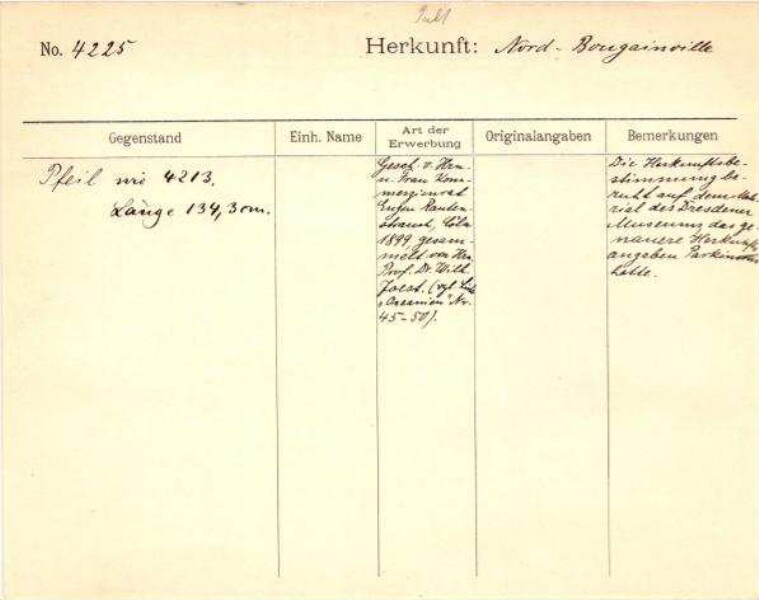 No. 4225
Herkunft: Nord-Bougainville
Gegenstand
Einh. Name
Art der
Erwerbung
Originalangaben
Bemerkungen
Pfeil wie 4213.
Länge 134,3 cm.
Gesch. v. Hrn.
u. Frau Kom-
merzienrat
Eugen Rauten-
strauch, Cöln
1899, gesam-
melt von Hrn.
Prof. Dr. Wilh.
Joest. (vgl. Liste
"Oceanien" Nr.
45-50).
Die Herkunftsbe-
stimmung be-
ruht auf dem Mat-
rial des Dresdener
Museums, das ge-
nauere Herkunfts-
angaben Parkinsons
hatte.